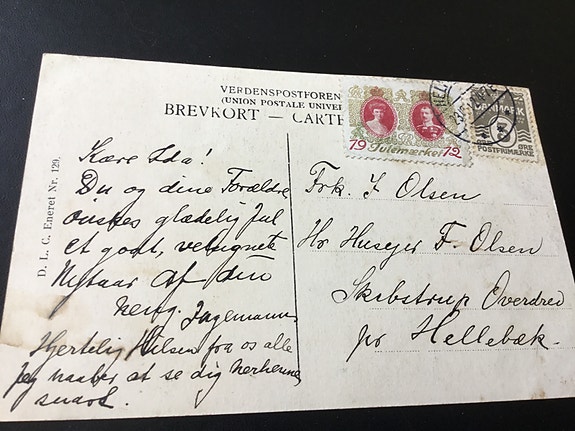 VERDENSPOSTFOREN
(UNION POSTALE UNIVER
BREVKORT — CARTE
19 Julemærket 12
DANMARK
ØRE
POSTFRIMÆRKE
D. L. C. Eneret Nr. 129.
Kære Ida!
Du og dine Forældre
ønskes glædelig Jul
et godt, velsignet
Nytaar af din
heng. Ingemann
Hjertelig Hilsen fra os alle
Jeg haaber at se dig herhenne
snart.
Frk. I Olsen
Hr Husejer F. Olsen
Skibstrup Overdrev
pr Hellebæk.